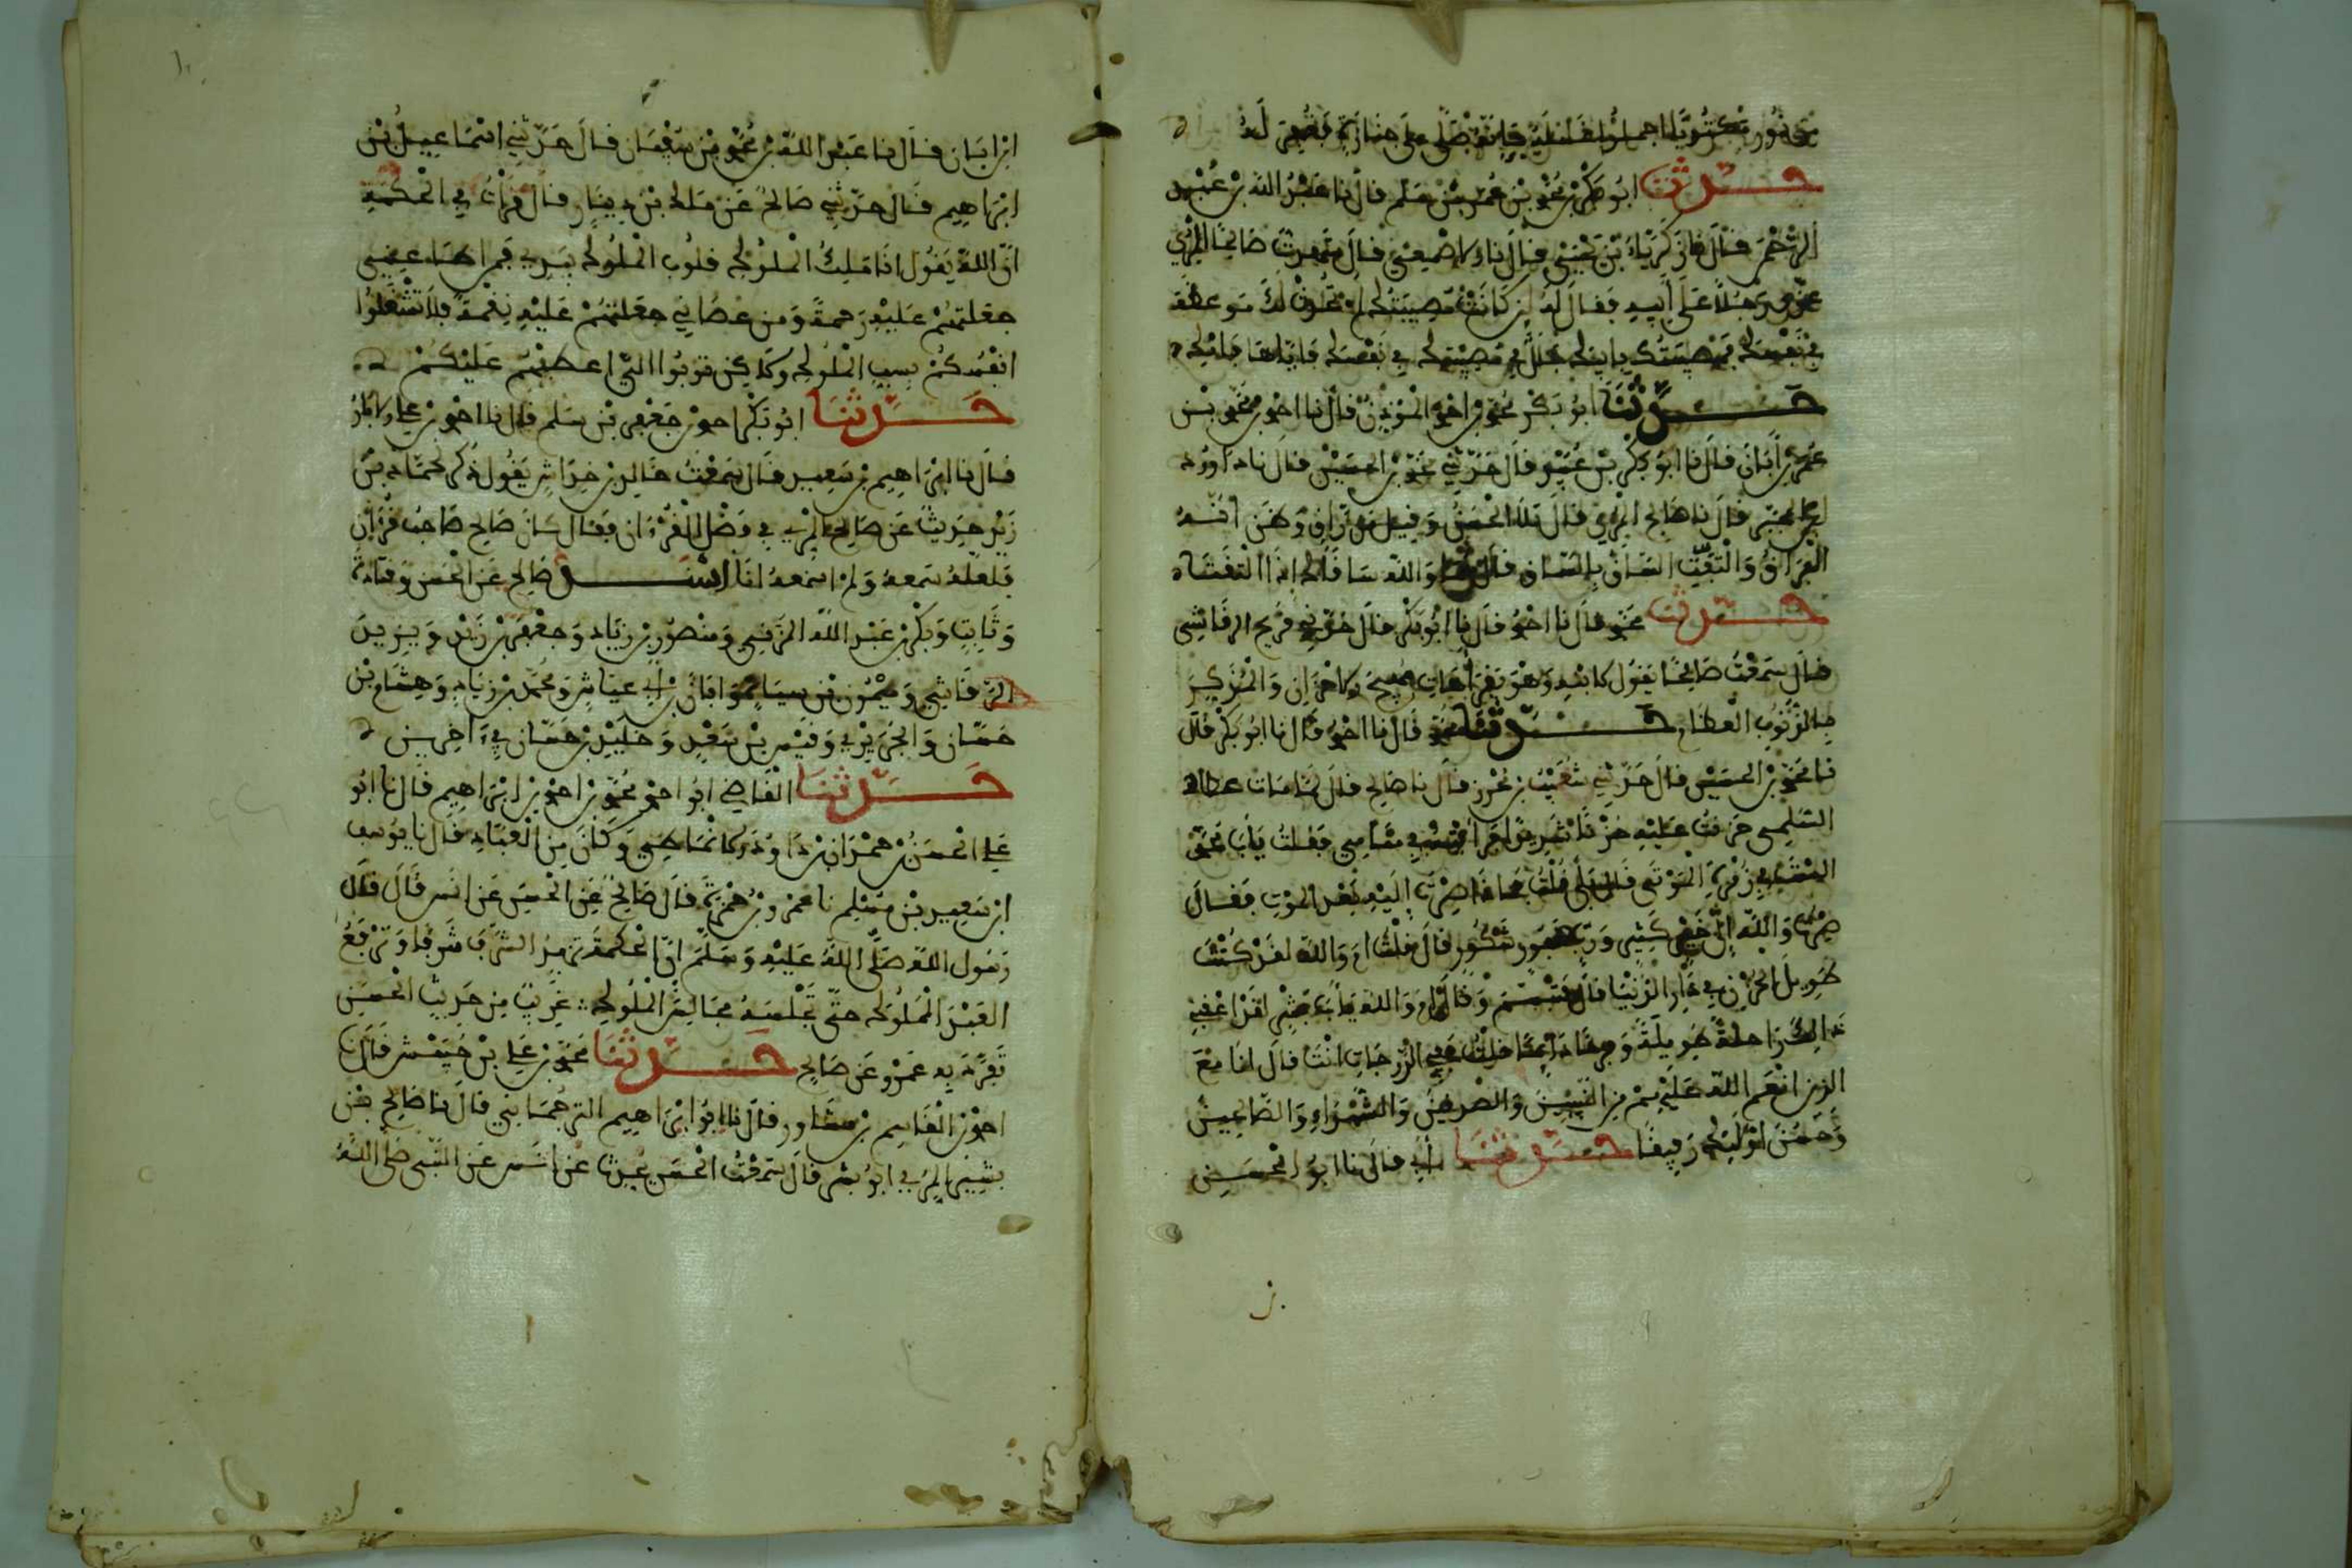 حدثنا ابو بكر محمد بن عمر بن سلم قال نا عبد الله بن
الرحمن قال نا زكرياء بن يحيى قال نا الاصمعي قال شهدت صالحا المري
عزى رجلا على ابيه فقال له لين كانت مصيبتك لم تحدث لك موعظة
في نفسك فمصيبتك بابيك جلل في مصيبتك في نفسك فاياها فابك
حدثنا ابو بكر محمد بن احمد الموذن قال نا احمد بن محمد بن
عمر بن ابان قال نا ابو بكر بن عبيد قال حدثني محمد بن الحسين قال نا داوود
ابن المحبر قال نا صالح المري قال تلا الحسن وقيل من راق وظن انه
الفراق والتفت الساق بالساق قال هما والله ساقاك اذا التفتا
حدثنا محمد قال نا احمد قال نا ابو بكر قال حدثني قريح الرقاشي
قال سمعت صالحا يقول
الذنوب العظام حدثنا محمد قال نا احمد قال نا ابو بكر قال
نا محمد بن الحسين قال حدثني شعيب بن محرز قال نا صالح قال لما مات عطاء
السلمي حزنت عليه حزنا شديدا فرايته في منامي فقلت يابا محمد
الست في زمرة الموتى قال بلى قلت فماذا صرت اليه بعد الموت فقال
صرت والله الى خير كثير ورب غفور شكور قال قلت اما والله لقد كنت
طويل الحزن في دار الدنيا قال فتبسم وقال اما والله يابا بشر لقد اعقبني
ذالك راحة طويلة وفرحا دايما قلت ففي اي الدرجات انت قال انا مع
الذين انعم الله عليهم من النبيين والصديقين والشهداء والصالحين
وحسن اوليك رفيقا حدثنا ابي قال نا ابو الحسن
ابن ابان قال نا عبد الله بن محمد بن سفيان قال حدثني اسماعيل بن
ابراهيم قال حدثني صالح عن مالك بن دينار قال قرات في الحكمة
ان الله يقول انا ملك الملوك قلوب الملوك بيدي فمن اطاعني
جعلتهم عليه رحمة ومن عصاني جعلتهم عليه نقمة فلا تشغلوا
انفسكم بسب الملوك ولاكن توبوا الي اعطفهم عليكم
حدثنا ابو بكر احمد بن جعفر بن سلم قال نا احمد بن علي الابار
قال نا ابراهيم بن سعيد قال سمعت خالد بن خداش يقول ذكر لحماد بن
زيد حديث عن صالح المري في فضل القرءان فقال كان صالح صاحب قرءان
فلعله سمعه ولم اسمعه انا اسند صالح عن الحسن وقتادة
وثابت وبكر بن عبد الله المزني ومنصور بن زياد وجعفر بن زيد ويزيد
الرقاشي وميمون بن سياه وابان بن ابي عياش ومحمد بن زياد وهشام بن
حسان والجريري وقيس بن سعيد وخليد بن حسان في ءاخرين
حدثنا القاضي ابو احمد محمد بن احمد بن ابراهيم قال نا ابو
علي الحسن بن حمدان بن داود الانماطي وكان من العباد قال نا يوسف
ابن سعيد بن مسلم نا عمرو بن حمزة قال صالح عن الحسن عن انس قال قال
رسول الله صلى الله عليه وسلم ان الحكمة تزيد الشرف شرفا وترفع
العبد المملوك حتى تجلسه مجالس الملوك غريب من حديث الحسن
تفرد به عمرو عن صالح حدثنا محمد بن علي بن حبيش قال نا
احمد بن القاسم بن مساور قال نا ابو ابراهيم الترجماني قال نا صالح بن
بشير المري ابو بشر قال سمعت الحسن يحدث عن انس عن النبي صلى الله